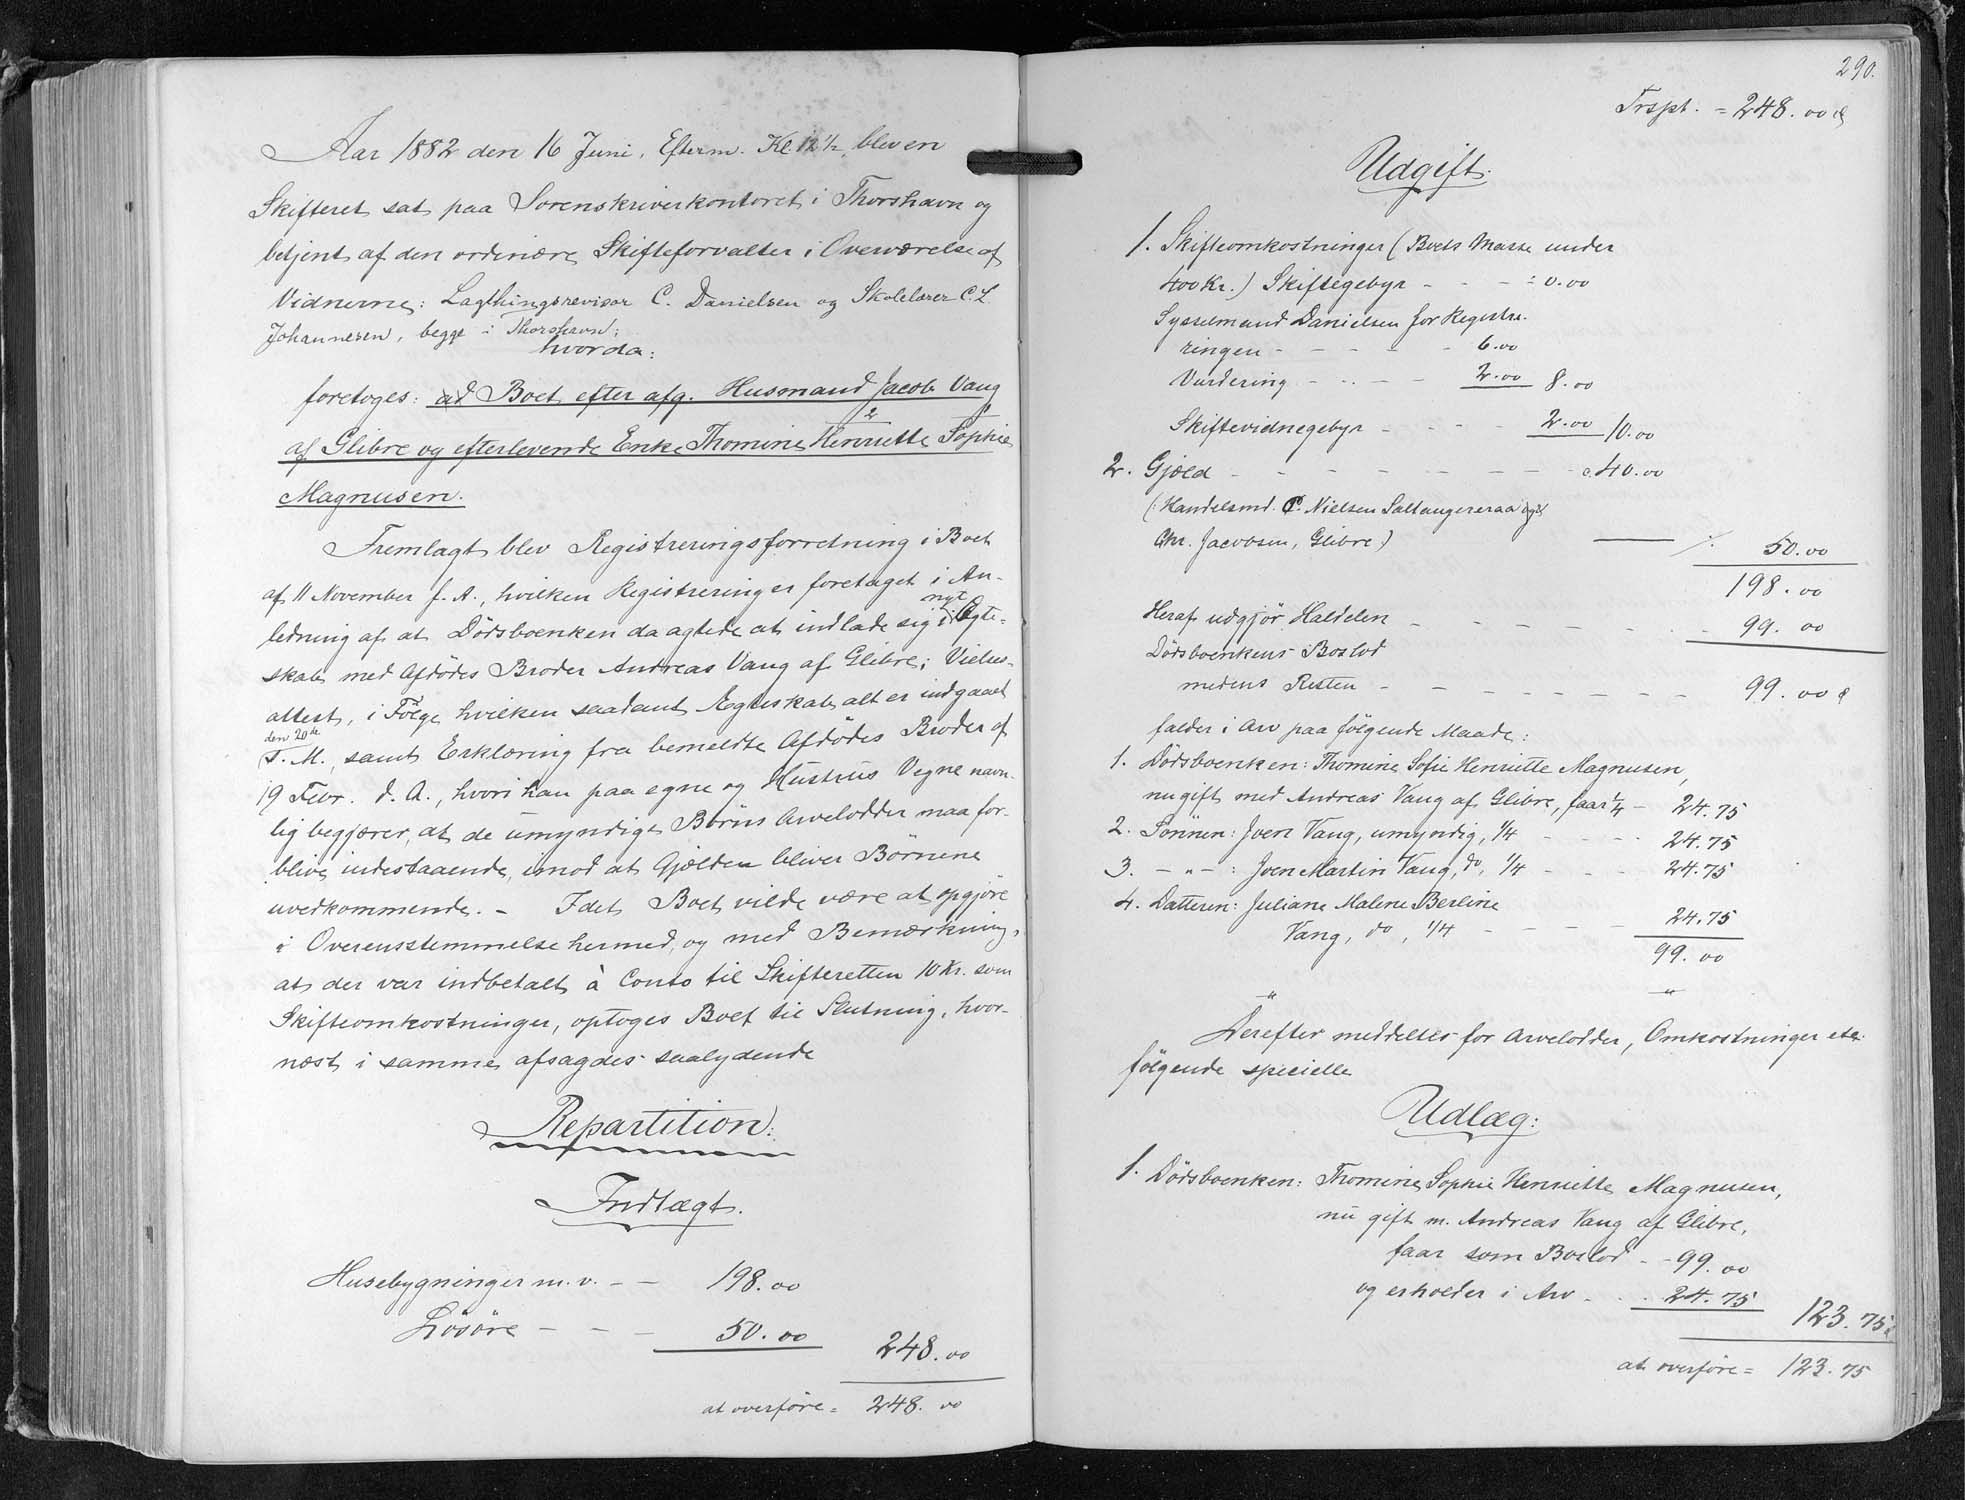 Aar 1882 den 16 Juni, Efterm. Kl. 12½, blev en
Skifteret sat paa Sorenskriverkontoret i Thorshavn og
betjent af den ordinære Skifteforvalter i Overværelse af
Vidnerne: Lagthingsrevisor C. Danielsen og Skolelærer C. L.
Johannesen, begge i Thorshavn;
hvorda:
foretoges: ad Boet efter afg. Husmand Jacob Vang
2 1
af Glibre og efterlevende Enke Thomine Henriette Sophie
Magnusen.
Fremlagt blev Registreringsforretning i Boet
af 11 November f. A., hvilken Registrering er foretaget i An-
ledning af at Dødsboenken da agtede at indlade sig i nyt Ægte-
skab med Afdødes Broder Andreas Vang af Glibre; Vielses-
attest, i Følge hvilken saadant Ægteskab alt er indgaaet
den 20de
F. M., samt Erklæring fra bemeldte Afdødes Broder af
19 Febr. d. A., hvori han paa egne og Hustrus Vegne navn-
lig begjærer, at de umyndige Børns Arvelodder maa for-
blive indestaaende, imod at Gjælden bliver Børnene
uvedkommende. – Idet Boet vilde være at opgjøre
i Overensstemmelse hermed, og med Bemærkning,
at der var indbetalt à Conto til Skifteretten 10 Kr. som
Skifteomkostninger, optoges Boet til Slutning, hvor-
næst i samme afsagdes saalydende
Repartition:
Indtægt.
Husebygninger m. v. – – 198.00
Løsøre – – – 50.00 248.00
at overføre = 248.00
290.
Trspt. = 248.00
Udgift.
1. Skifteomkostninger (Boets Masse under
400 Kr.) Skiftegebyr - - - = 0.00
Sysselmand Danielsen for Registre-
ringen - - - - - 6.00
Vurdering - - - - 2.00 8.00
Skiftevidnegebyr - - - - 2.00 10.00
2. Gjæld - - - - - - - 40.00
(: Handelsmd. P. Nielsen Saltangeraa og
Chr. Jacobsen, Glibre:) ./. 50.00
198.00
Heraf udgjør Halvdelen - - - - - - 99.00
Dødsboenkens Boslod
medens Resten - - - - - - - - 99.00
falder i Arv paa følgende Maade:
1. Dødsboenken: Thomine Sofie Henriette Magnusen,
nu gift med Andreas Vang af Glibre, faar ¼ - 24.75
2. Sønnen: Joen Vang, umyndig, ¼ - - - - 24.75
3. - " - : Joen Martin Vang, do, ¼ - - - 24.75
4. Datteren: Juliane Malene Berline
Vang, do, ¼ - - - - 24.75
99.00
" "
Derefter meddeltes for Arvelodder, Omkostninger etc.
følgende specielle
Udlæg:
1. Dødsboenken: Thomine Sophie Henriette Magnusen,
nu gift m. Andreas Vang af Glibre,
faar som Boslod - - 99.00
og erholder i Arv - - 24.75 123.75
at overføre = 123.75